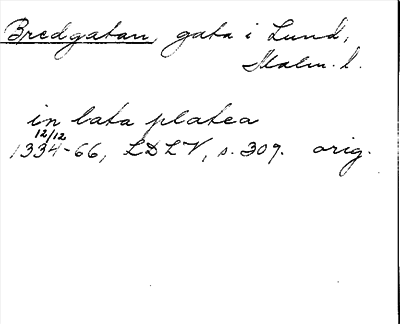 Bredgatan, gata i Lund,
Malm. l.
in lata platea
12/12
1334-66, LDLV, s. 307. orig.